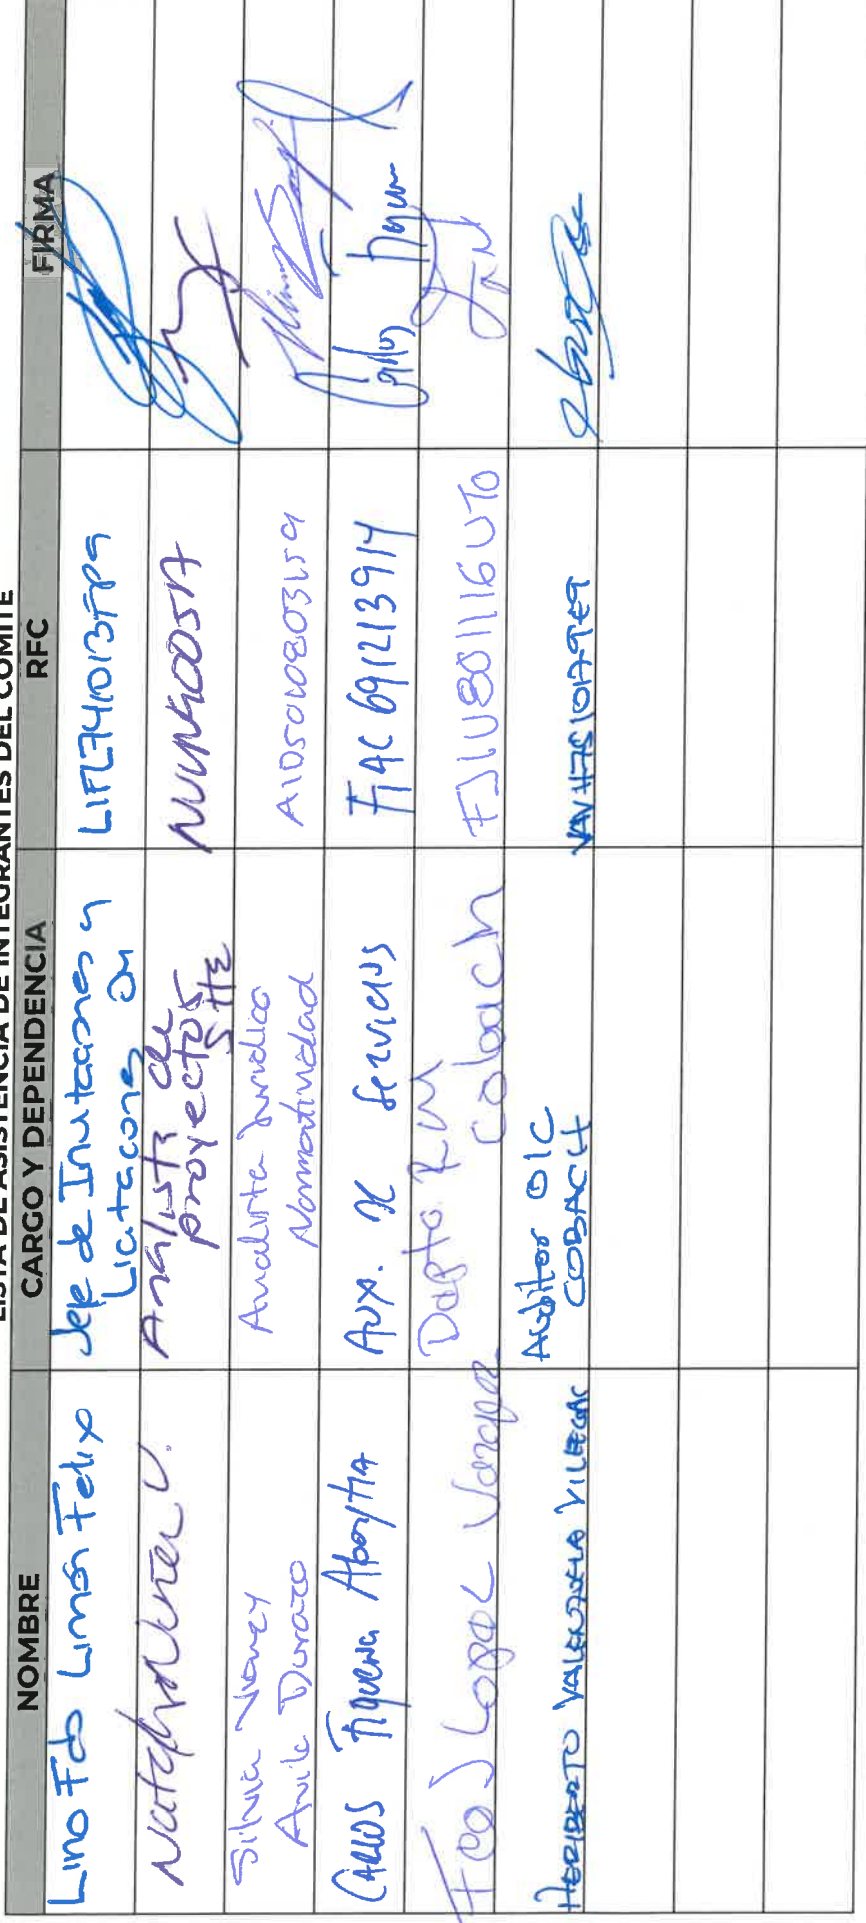 LISTA DE ASISTENCIA DE INTEGRANTES DEL COMITÉ
NOMBRE CARGO Y DEPENDENCIA RFC FIRMA
Lino Fdo Limón Felix Jefe de Invitaciones y Licitacions OM LIFL741013FP9
Natalia Núñez V. Analista de proyectos SHE
Silvia Nancy Avila Durazo Analista Juridico Normatividad
CARLOS Figueroa Aboytia Aux. de Servicios FIAC691213914
Fco J Lopez Vazquez Depto RM Cobach FJLV801116UT0
HERIBERTO VALENZUELA VILLEGAS Auditor OIC COBACH